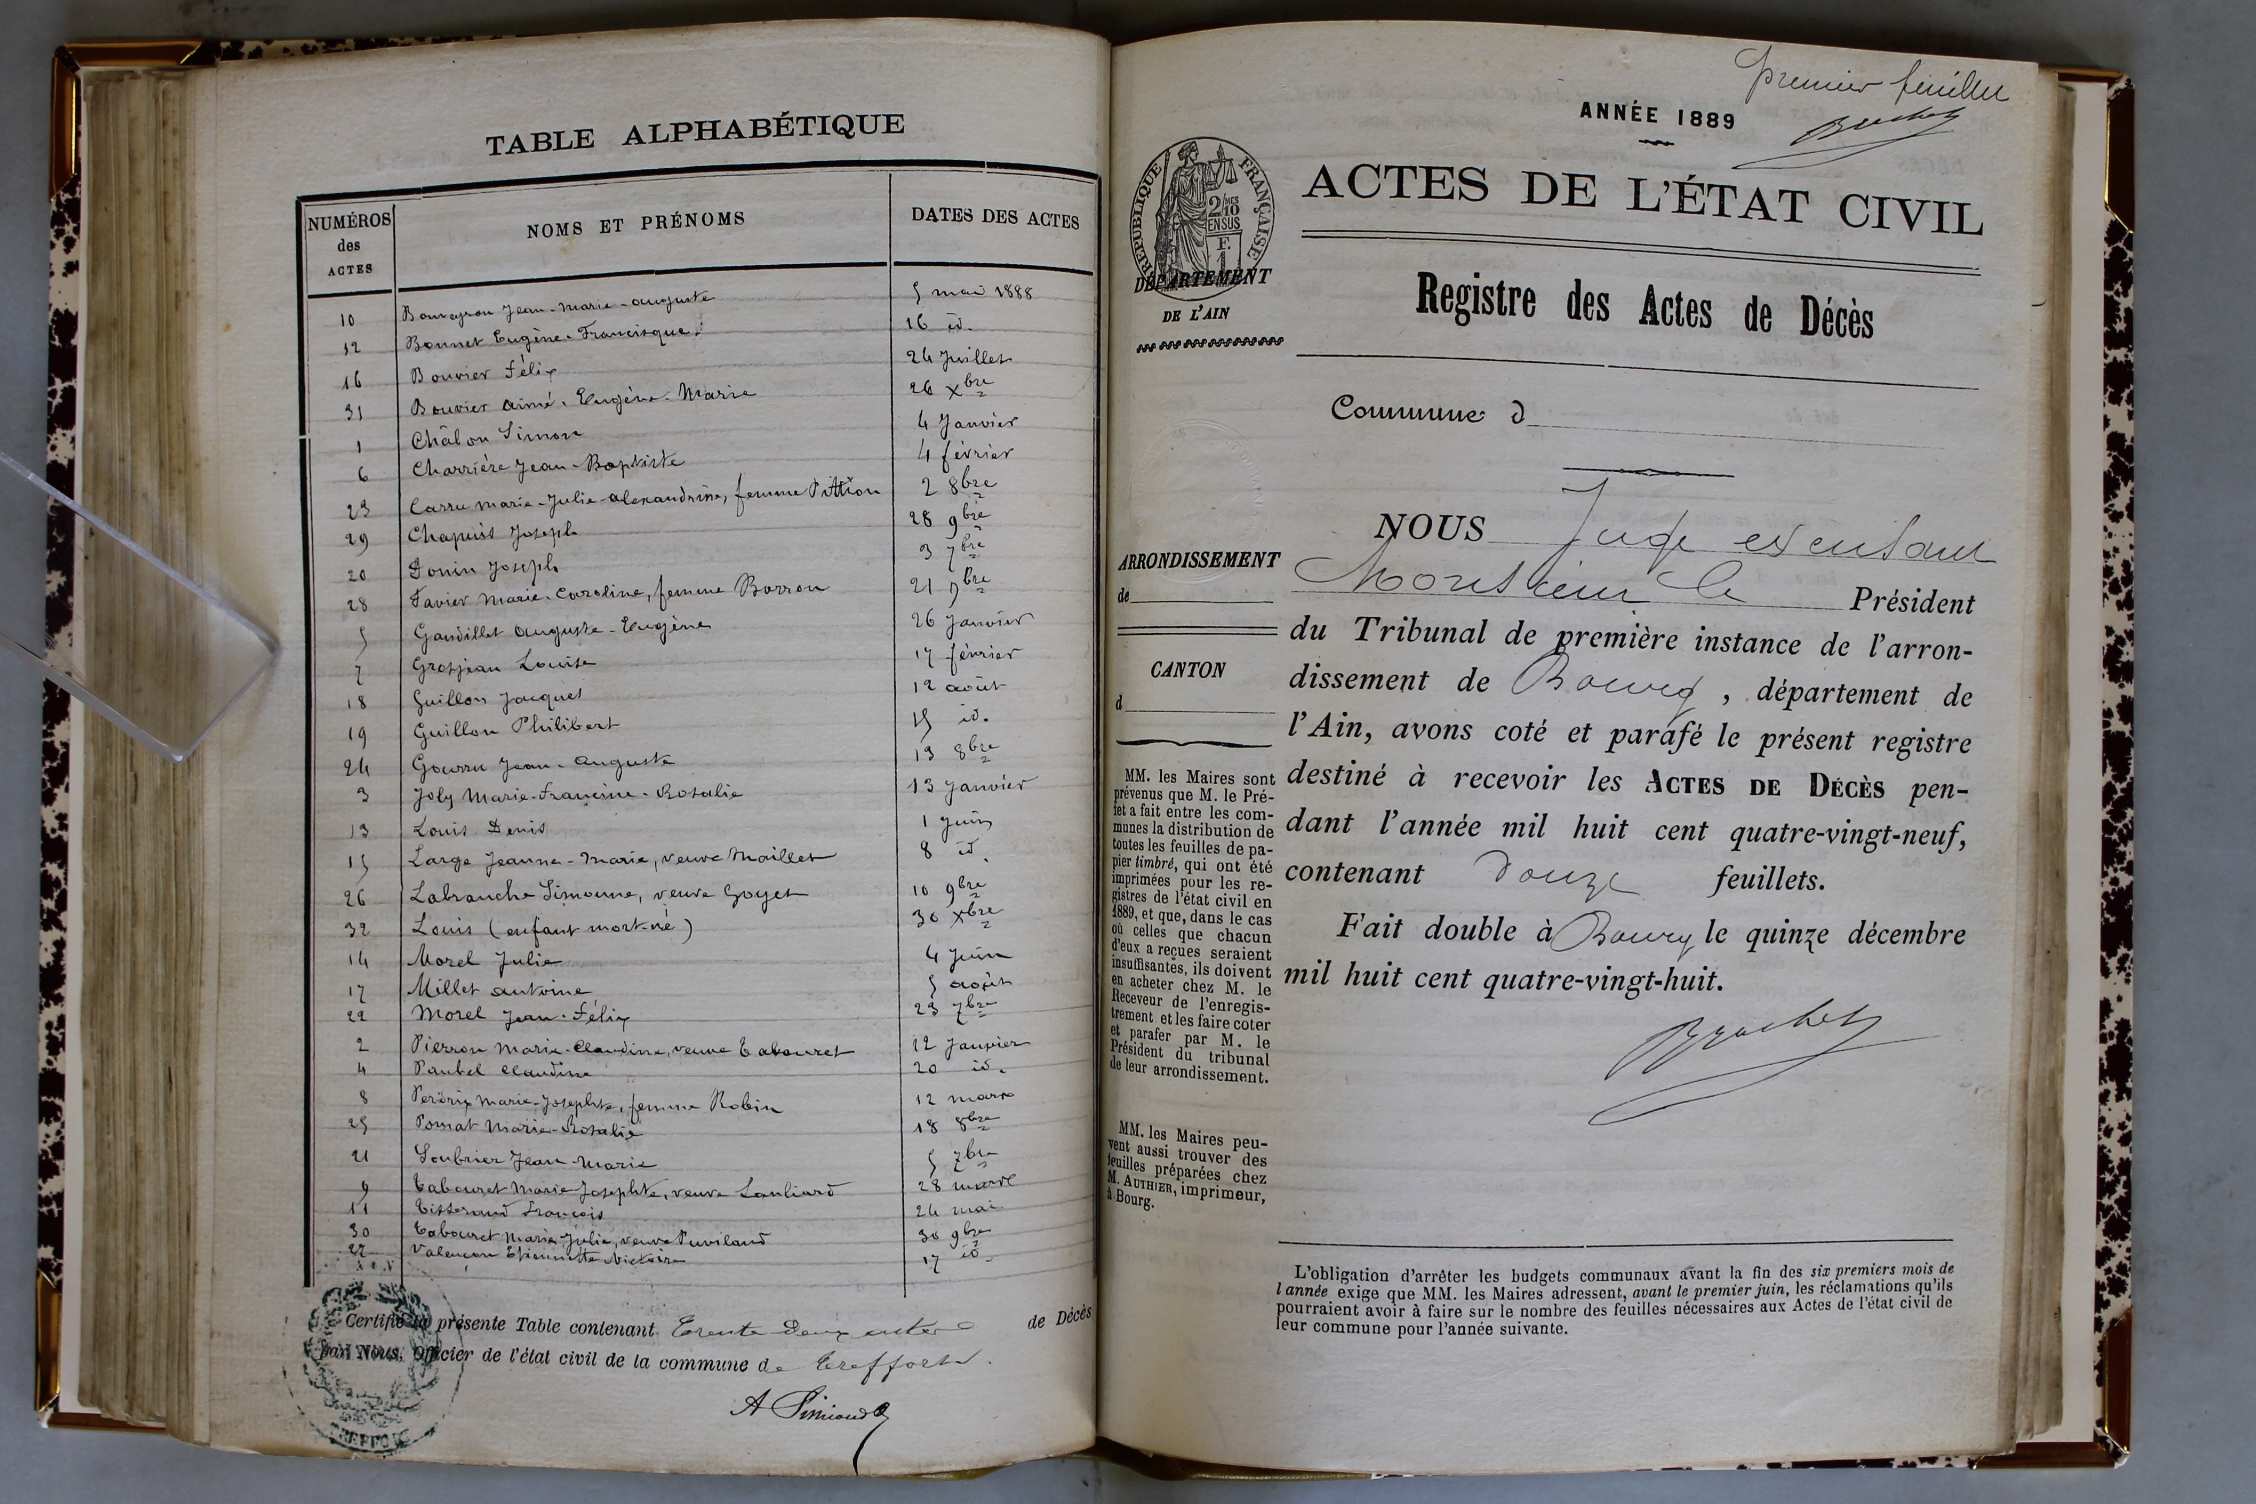 TABLE ALPHABÉTIQUE
NUMÉROS des ACTES
NOMS ET PRÉNOMS
DATES DES ACTES
10 Bouveyron Jean-Marie-Auguste 5 mai 1888
12 Bonnet Eugène-Francisque 16 id.
16 Bouvier Félix 24 Juillet
31 Bouvier Aimé-Eugène-Marie 26 Xbre
1 Châlon Simon 4 Janvier
6 Charrière Jean-Baptiste 4 février
23 Carru Marie-Julie-Alexandrine, femme Pittion 2 8bre
29 Chapuis Joseph 28 9bre
20 Donin Joseph 3 7bre
28 Favier Marie-Caroline, femme Borron 21 9bre
5 Gaudillet Auguste-Eugène 26 Janvier
7 Grosjean Louise 17 février
18 Guillon Jacques 12 août
19 Guillon Philibert 15 id.
24 Gourru Jean-Auguste 13 8bre
3 Joly Marie-Francine-Rosalie 13 Janvier
13 Louis Denis 1 Juin
15 Large Jeanne-Marie, veuve Maillet 8 id.
26 Labranche Simonne, veuve Goyet 10 9bre
32 Louis (enfant mort-né) 30 Xbre
14 Morel Julie 4 Juin
17 Millet Antoine 5 août
22 Morel Jean-Félix 23 7bre
2 Pierron Marie-Claudine, veuve Tabouret 12 Janvier
4 Paubel Claudine 20 id.
8 Perdrix Marie-Josephte, femme Robin 12 mars
25 Pomat Marie-Rosalie 18 8bre
21 Soubrier Jean-Marie 5 7bre
9 Tabouret Marie Josephte, veuve Sauliard 28 mars
11 Tisserand François 24 mai
30 Tabouret Marie-Julie, veuve Puviland 30 9bre
27 Valençon Etiennette Victoire 17 id.
Certifié la présente Table contenant Trente Deux actes de Décès
par Nous, Officier de l'état civil de la commune de Treffort.
Premier feuillet
ANNÉE 1889
Brachet
ACTES DE L'ÉTAT CIVIL
RÉPUBLIQUE FRANÇAISE
2/10 EN SUS
F. 1
DÉPARTEMENT
DE L'AIN
Registre des Actes de Décès
Commune d
NOUS Juge exerçant
Monsieur le Président
du Tribunal de première instance de l'arron-
dissement de Bourg, département de
l'Ain, avons coté et parafé le présent registre
destiné à recevoir les ACTES DE DÉCÈS pen-
dant l'année mil huit cent quatre-vingt-neuf,
contenant Douze feuillets.
Fait double à Bourg le quinze décembre
mil huit cent quatre-vingt-huit.
Brachet
ARRONDISSEMENT
de
CANTON
d
MM. les Maires sont
prévenus que M. le Pré-
fet a fait entre les com-
munes la distribution de
toutes les feuilles de pa-
pier timbré, qui ont été
imprimées pour les re-
gistres de l'état civil en
1889, et que, dans le cas
où celles que chacun
d'eux a reçues seraient
insuffisantes, ils doivent
en acheter chez M. le
Receveur de l'enregis-
trement et les faire coter
et parafer par M. le
Président du tribunal
de leur arrondissement.
MM. les Maires peu-
vent aussi trouver des
feuilles préparées chez
M. AUTHIER, imprimeur,
à Bourg.
L'obligation d'arrêter les budgets communaux avant la fin des six premiers mois de
l'année exige que MM. les Maires adressent, avant le premier juin, les réclamations qu'ils
pourraient avoir à faire sur le nombre des feuilles nécessaires aux Actes de l'état civil de
leur commune pour l'année suivante.